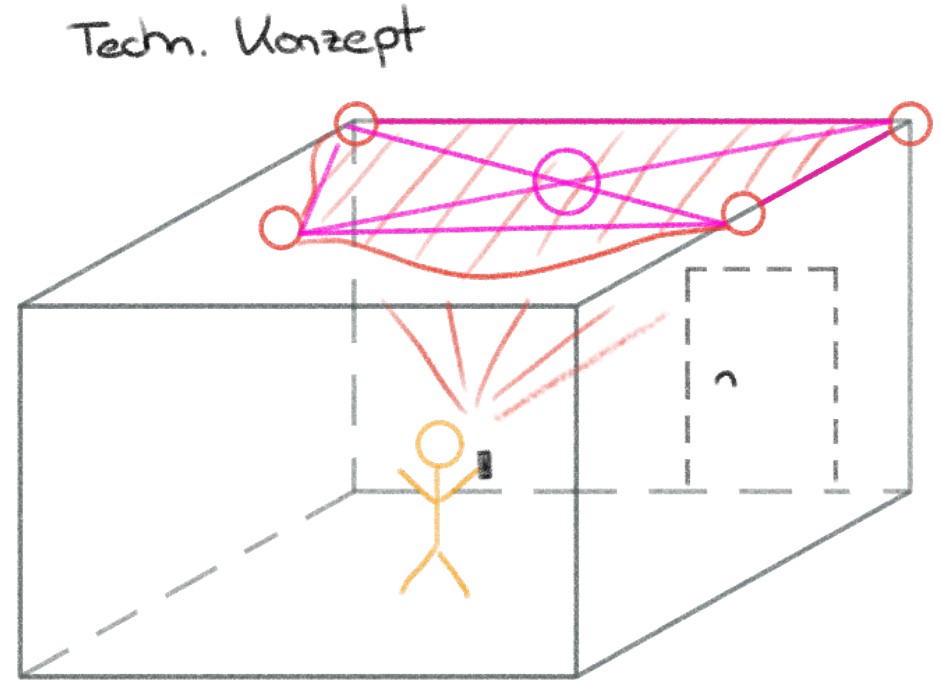 Techn. Konzept